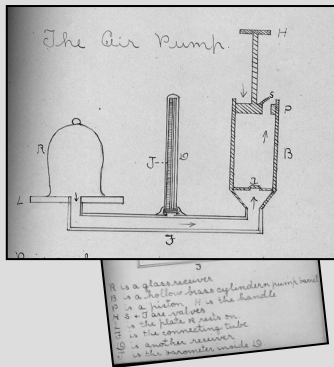 The Air Pump.
H
S
P
R
J
D
B
L
F
R is a glass receiver
B is a hollow brass cylinder or pump barrel
P is a piston H is the handle
S + J are valves
is the plate R rests on
is the connecting tube
is another receiver
is the barometer inside D